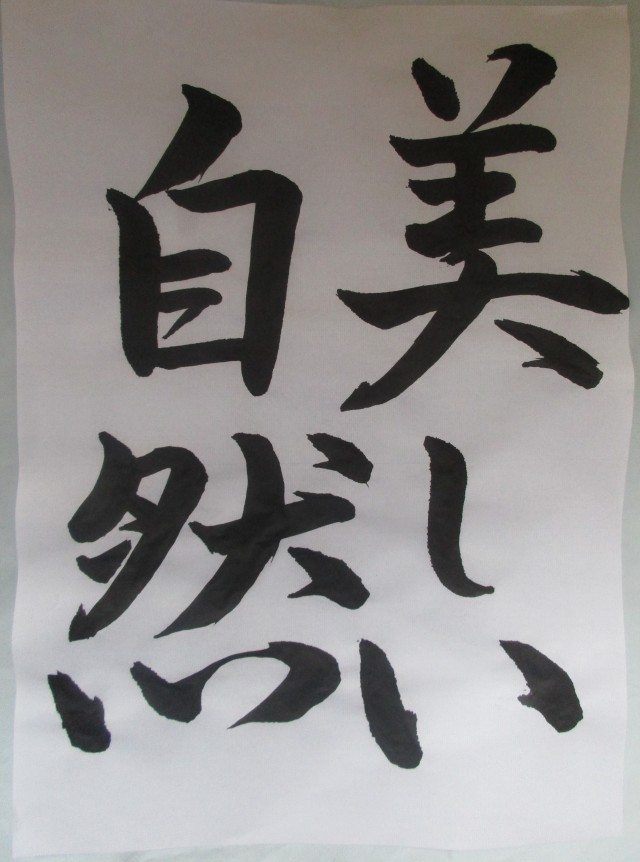 美しい
自然